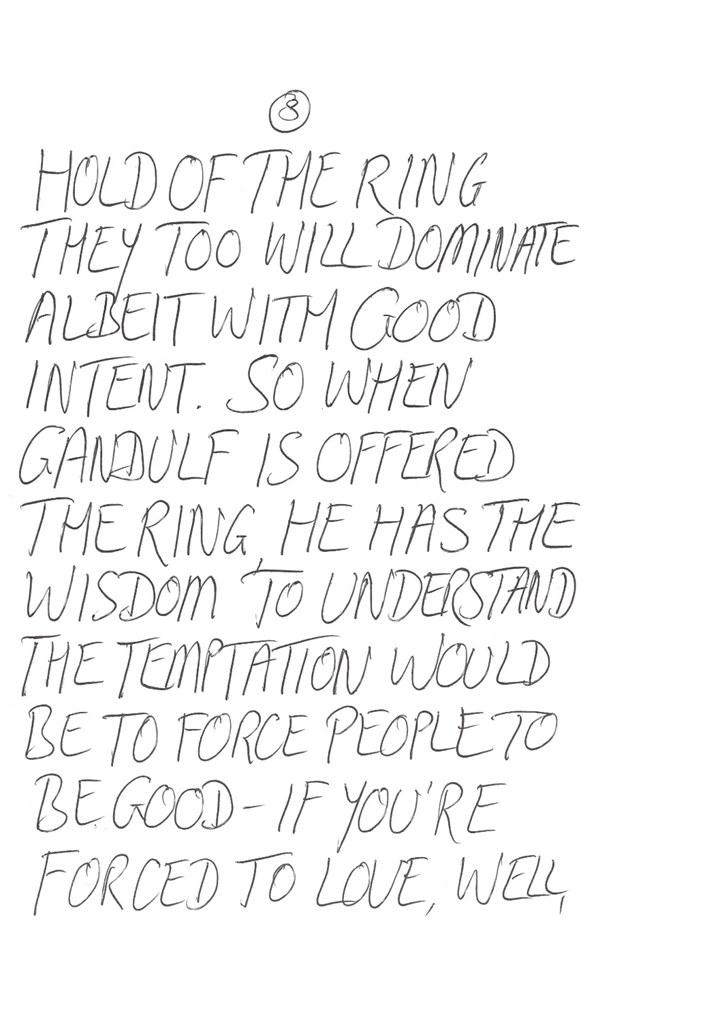 8
HOLD OF THE RING
THEY TOO WILL DOMINATE
ALBEIT WITH GOOD
INTENT. SO WHEN
GANDULF IS OFFERED
THE RING, HE HAS THE
WISDOM TO UNDERSTAND
THE TEMPTATION WOULD
BE TO FORCE PEOPLE TO
BE GOOD - IF YOU'RE
FORCED TO LOVE, WELL,